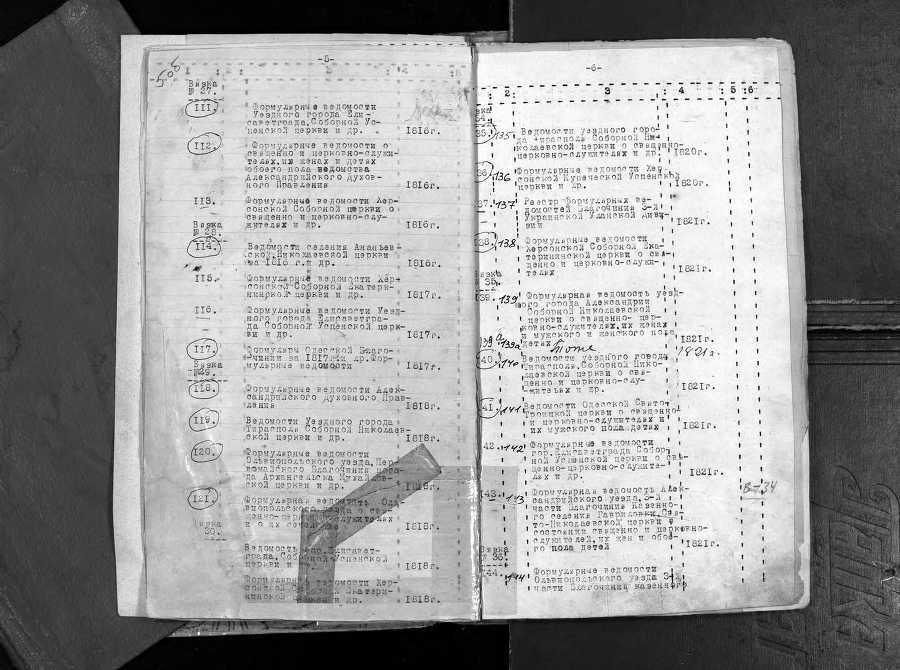 -5-
Вязка
№ 27.
III. Формулярные ведомости
Уездного города Ели-
саветграда, Соборной Ус-
пенской церкви и др. I816г.
II2. Формулярные ведомости о
священно и церковно-служи-
телях, их женах и детях
обоего пола ведомства
Александрийского духов-
ного Правления I816г.
II3. Формулярные ведомости Хер-
сонской Соборной церкви о
священно и церковно-слу-
жителях и др. I816г.
Вязка
№ 28.
II4. Ведомости селения Ананьев-
ской Николаевской церкви
за I816 г. и др. I816г.
II5. Формулярные ведомости Хер-
сонской Соборной Екатери-
нинской церкви и др. I817г.
II6. Формулярные ведомости Уезд-
ного города Елисаветгра-
да Соборной Успенской церк-
ви и др. I817г.
II7. Формуляры Одесской Благо-
чинии за I817г. и др. Фор-
мулярные ведомости I817г.
Вязка
№29.
II8. Формулярные ведомости Алек-
сандрийского Духовного Прав-
ления I818г.
II9. Ведомости Уездного города
Тирасполя Соборной Николаев-
ской церкви и др. I818г.
I20. Формулярные ведомости
Ольвиопольского уезда, Пер-
вомайского Благочиния поса-
да Архангельска Михайлов-
ской церкви и др. I818г.
I2I. Формулярные ведомости
о свя-
щенно-церковно-служителях
и о их I818г.
Вязка
30.
Ведомость гор. Елисавет-
града, Соборной Успенской
церкви и I818г.
Формулярные ведомости Хер-
сонской Соборной Екатери-
нинской церкви и др. I818г.
-6-
2: 3 : 4 : 5 :6
35. 135 Ведомости уездного горо-
да Тирасполя Соборной Ни-
колаевской церкви о священно-
церковно-служителях и др. I820г.
36. 136 Формулярные ведомости Хер-
сонской Купеческой Успенской
церкви и др. I820г.
37. 137 Реестр формулярных ве-
домостей Благочиния 3-й
Украинской Уланской диви-
зии I82Iг.
38. 138 Формулярные ведомости
Херсонской Соборной Ека-
терининской церкви о свя-
щенно и церковно-служи-
телях I82Iг.
Вязка
35.
39. 139 Формулярная ведомость уезд-
ного города Александрии
Соборной Николаевской
церкви о священно- цер-
ковно-служителях, их женах
и мужского и женского пола
детях I82Iг.
139а Тоже 1821г.
40. 140 Ведомости уездного города
Тирасполя, Соборной Нико-
лаевской церкви о свя-
щенно и церковно-слу-
жителях и др. I82Iг.
41. 141 Ведомости Одесской Свято-
Троицкой церкви о священно
и церковно-служителях и
их мужского пола детях I82Iг.
42. 142 Формулярные ведомости
гор. Елисаветграда Собор-
ной Успенской церкви о свя-
щенно-церковно-служите-
лях и др. I82Iг.
43. 143 Формулярная ведомость Алек-
сандрийского уезда, 3-й
части Благочиния Казенно-
го селения Гавриловки, Свя-
то-Николаевской церкви о
состоянии священно и церковно-
служителей, их жен и обое-
го пола детей I82Iг.
В-34
Вязка
36.
44. 144 Формулярные ведомости
Ольвиопольского уезда 3-й
части Благочиния казенного